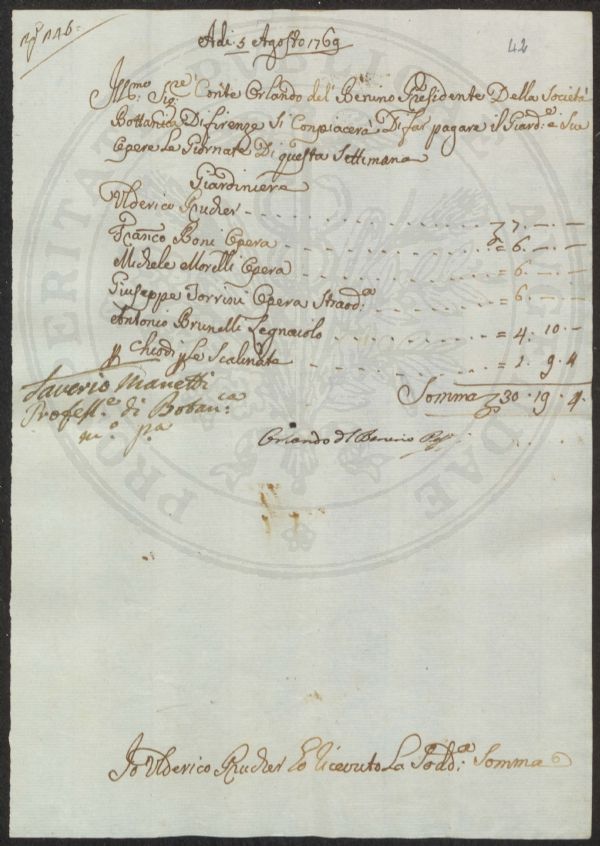 N.º 146.
42
Adi 5 Agosto 1769
Ill:mo Sig:re Conte Orlando del Benino Presidente Della Società
Bottanica Di firenze Si Conpiacerà Di far pagare il Giard:e e Sue
Opere Le Giornate Di questa Settimana
Giardiniere
Ulderico Prucher - - - 7. - . -
Franco Boni Opera - - - = 6. - . -
Michele Morelli Opera - - - = 6. - . -
Giuseppe Torrini Opera Straod:a - - - = 6. - . -
Antonio Brunelli Legnaiolo - - - = 4. 10. -
p Chiodi p Le Scalinate - - - = 1. 9. 4
Somma 30. 19. 4.
Saverio Manetti
Profess:e di Botan:ca
m:o p:a
Orlando del Benino
Io Ulderico Prucher o Ricevuto La Sodd:a Somma
PROSPERITATI PUBLICAE AUGENDAE